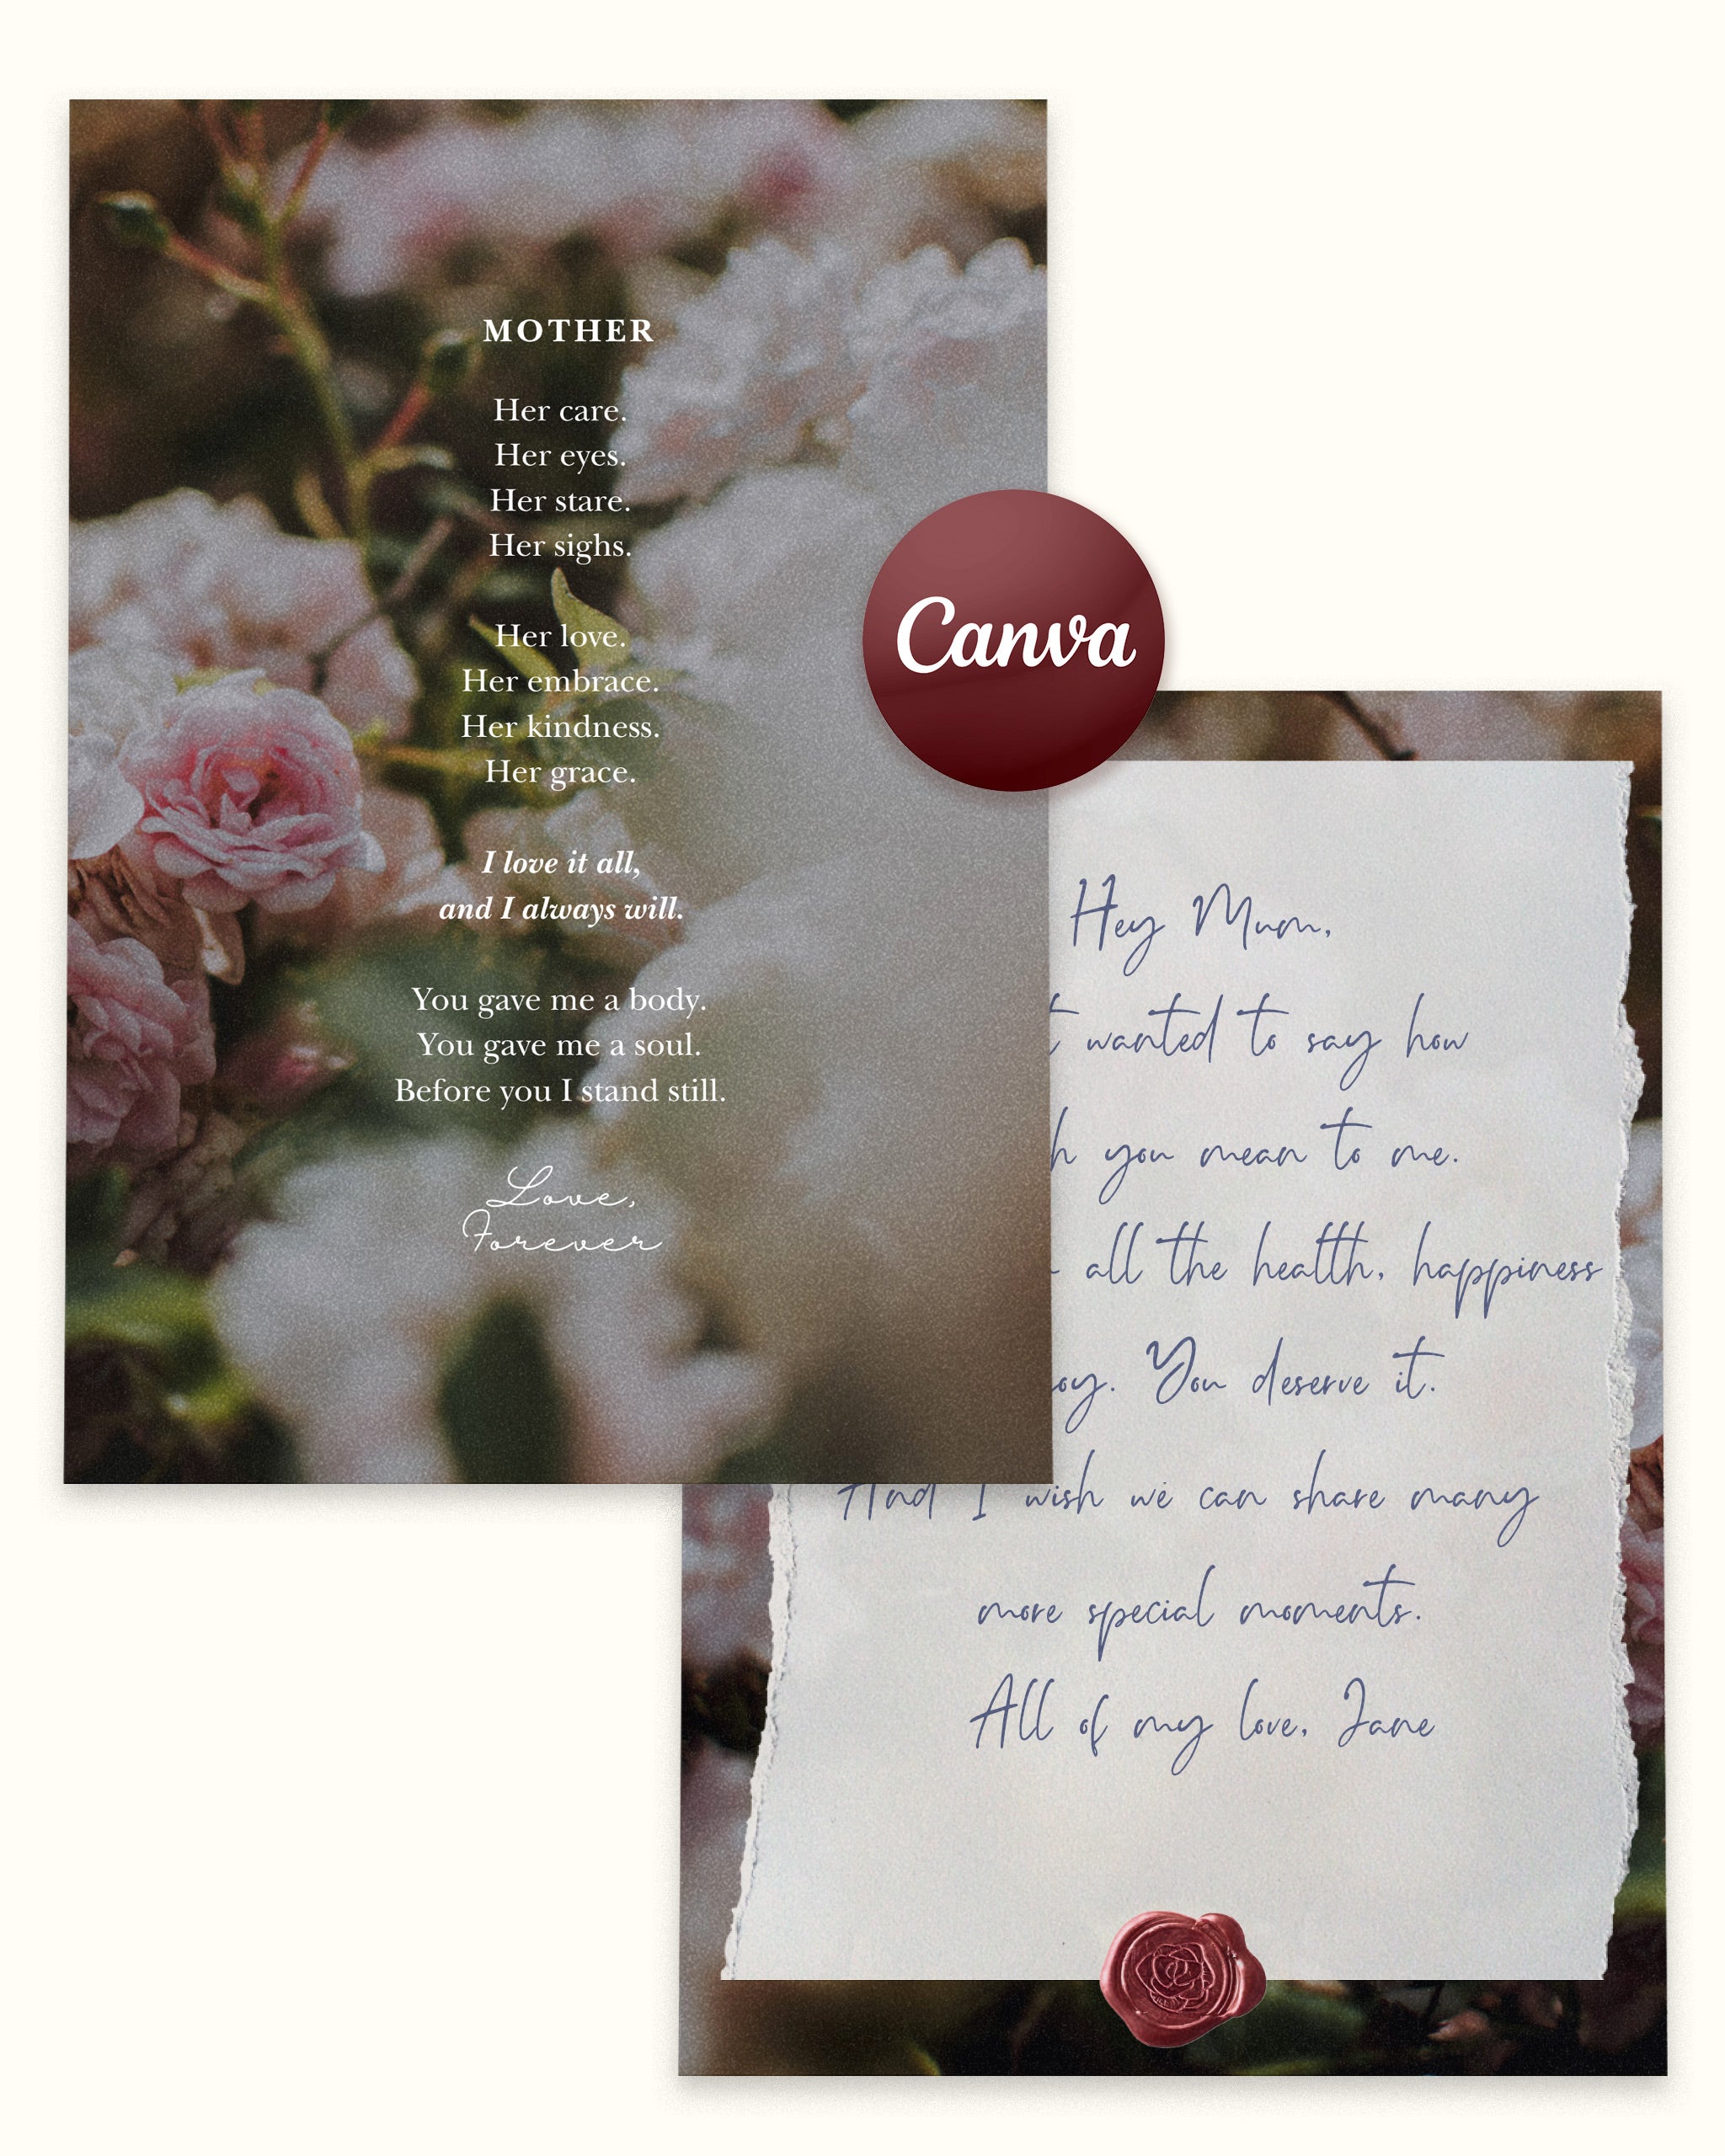 MOTHER
Her care.
Her eyes.
Her stare.
Her sighs.
Her love.
Her embrace.
Her kindness.
Her grace.
I love it all,
and I always will.
You gave me a body.
You gave me a soul.
Before you I stand still.
Love,
Forever
Canva
Hey Mum,
wanted to say how
you mean to me.
all the health, happiness
You deserve it.
And I wish we can share many
more special moments.
All of my love, Jane